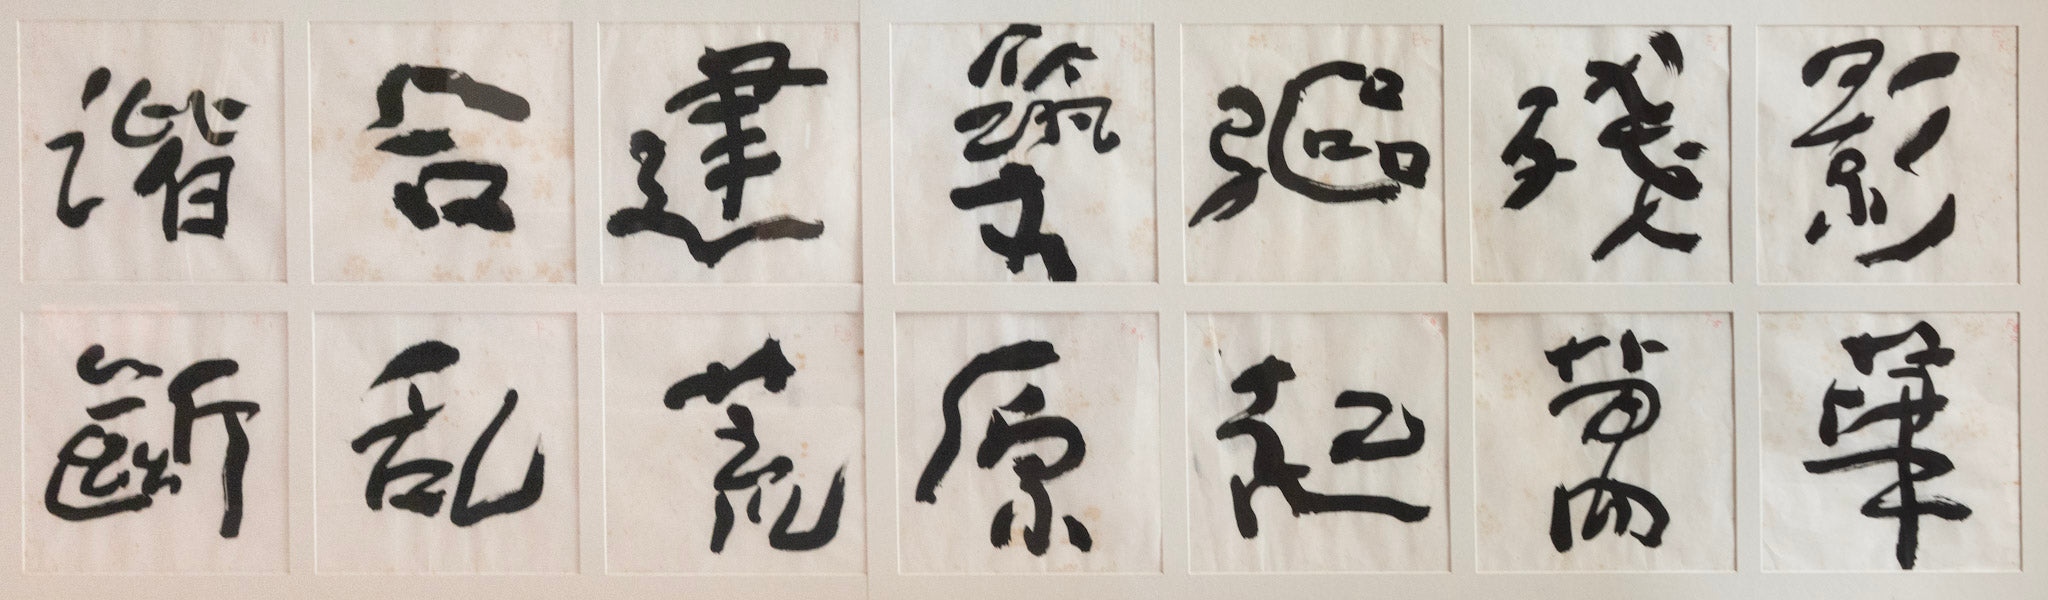 諧合建築驅殘影
斷乱荒原起萬華